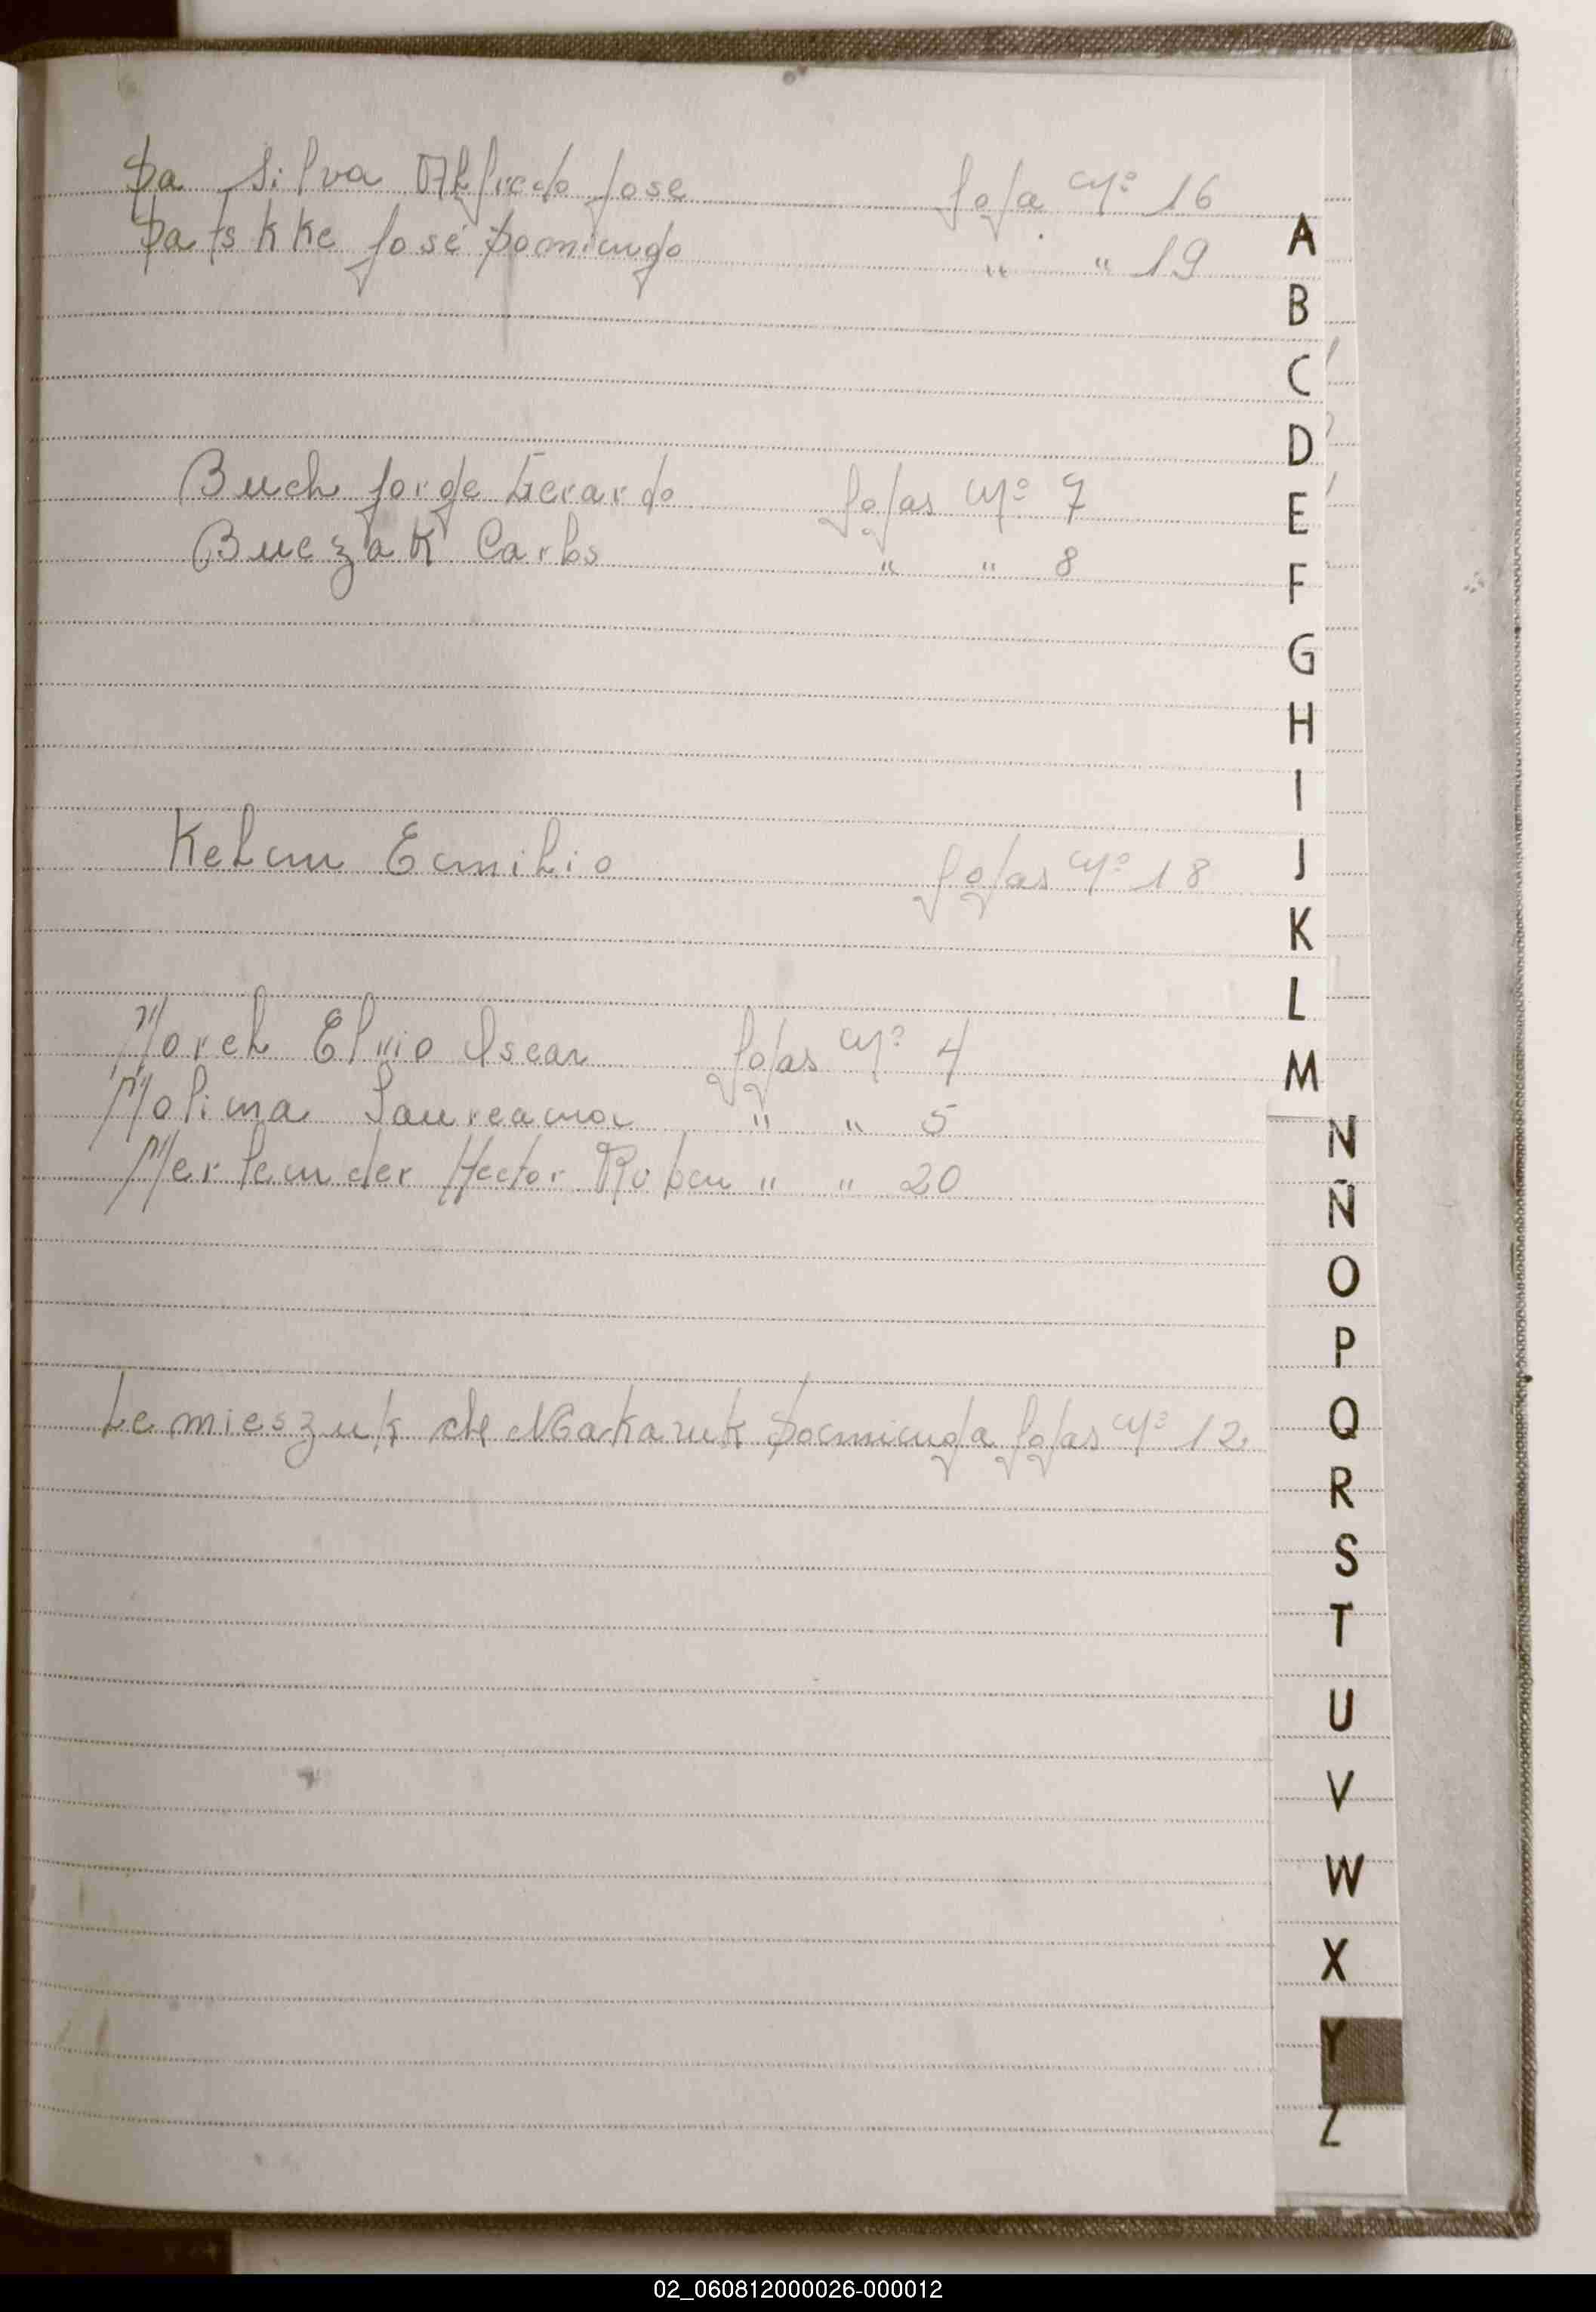 Da Silva Alfredo Jose foja nº 16
Datskke José Domingo " " 19
Buch Jorge Gerardo fojas nº 7
Buczak Carlos " " 8
Keln Emilio fojas nº 18
Morel Elvio Oscar fojas nº 4
Molina Laureano " " 5
Merlender Hector Ruben " " 20
Lemieszuk de Makaruk Dominga fojas nº 12
A
B
C
D
E
F
G
H
I
J
K
L
M
N
Ñ
O
P
Q
R
S
T
U
V
W
X
Y
Z
02_060812000026-000012